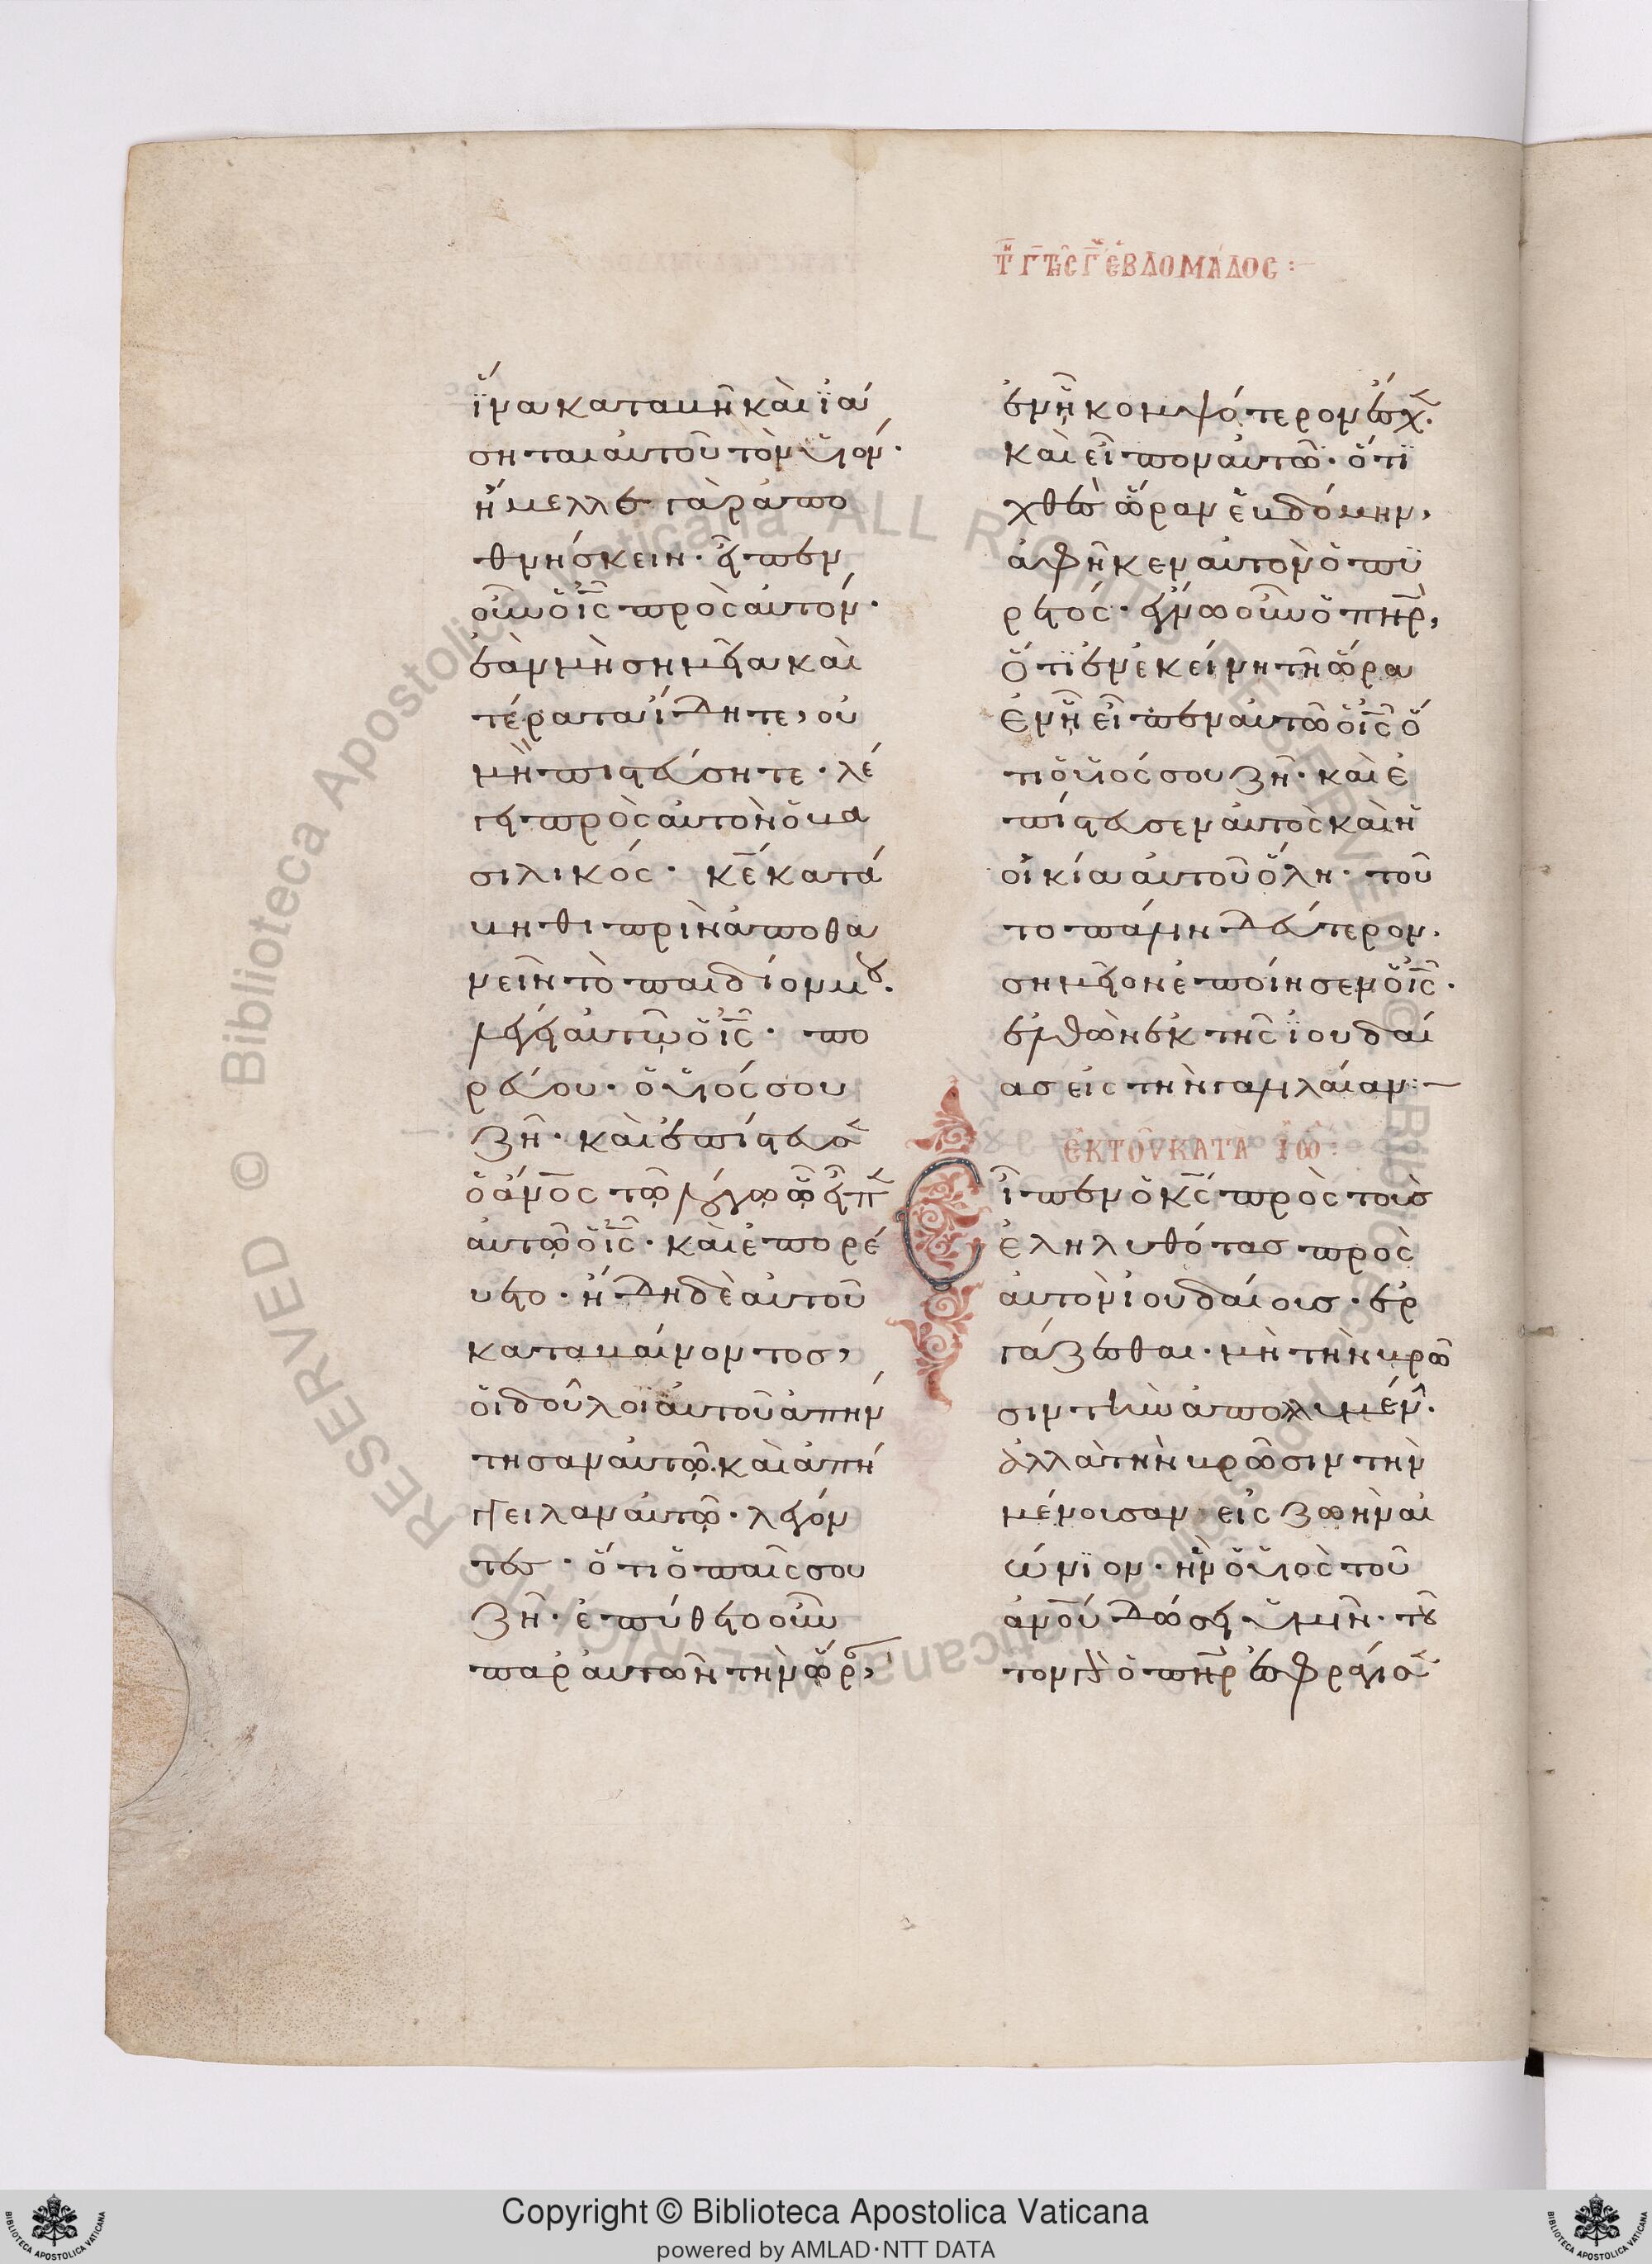 Τῇ γ τῆς γ ἑβδομάδος :—
ἵνα καταβῆ καὶ ϊά
σηται αὐτοῦ τὸν υἱόν·
ἤμελλε γὰρ ἀπο
θνήσκειν· εἶπεν
οὖν ὁ ις πρὸς αὐτόν·
ἐὰν μὴ σημεῖα καὶ
τέρατα ἴδητε, οὐ
μὴ πιστεύσητε· λέ
γει πρὸς αὐτὸν ὁ βα
σιλικός· κε κατά
βηθι πρὶν ἀποθα
νεῖν τὸ παιδίον μου·
λέγει αὐτῷ ὁ ις· πο
ρεύου· ὁ υἱός σου
ζῆ· καὶ ἐπίστευσε
ὁ ανος τῷ λόγῳ ᾧ εἶπε
αὐτῷ ὁ ις· καὶ ἐπορέ
υετο· ἤδη δὲ αὐτοῦ
καταβαίνοντος,
οἱ δοῦλοι αὐτοῦ ἀπήν
τησαν αὐτῷ· καὶ ἀπή
γγειλαν αὐτῷ· λέγον
τες· ὅτι ὁ παῖς σου
ζῆ· ἐπύθετο οὖν
παρ αὐτῶν τὴν ὥρ,
ἐν ᾗ κομψότερον ἔσχε·
καὶ εἶπον αὐτῷ· ὅτι
χθὲς ὥραν ἑβδόμην,
ἀφῆκεν αὐτὸν ὁ πυ
ρετός· ἔγνω οὖν ὁ πηρ,
ὅτι ἐν ἐκείνη τῆ ὥρα
ἐν ᾗ εἶπεν αὐτῷ ὁ ις ὅ
τι ὁ υἱός σου ζῆ· καὶ ἐ
πίστευσεν αὐτὸς καὶ ἡ
οἰκία αὐτοῦ ὅλη· τοῦ
το πάλιν δεύτερον·
σημεῖον ἐποίησεν ὁ ις·
ἐλθὼν ἐκ τῆς ϊουδαί
ας εἰς τὴν γαλιλαίαν :—
ἐκ τοῦ κατὰ ἰω :
Εἶπεν ὁ κς πρὸς τοὺς
ἐληλυθότας πρὸς
αὐτὸν ἰουδαίους· ἐρ
γάζεσθαι· μὴ τὴν βρῶ
σιν τὴν ἀπολλυμέν·
ἀλλὰ τὴν βρῶσιν τὴν
μένουσαν εἰς ζωὴν αἰ
ώνϊον· ἣν ὁ υἱὸς τοῦ
ανου δώσει ὑμῖν· τοῦ
τον γὰρ ὁ πηρ ἐσφράγισε
Copyright © Biblioteca Apostolica Vaticana
powered by AMLAD·NTT DATA